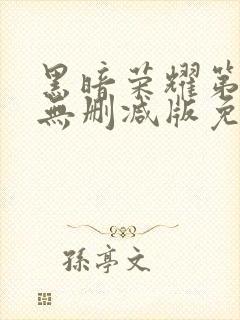 黑暗荣耀第
無刪减版免
孫亭文